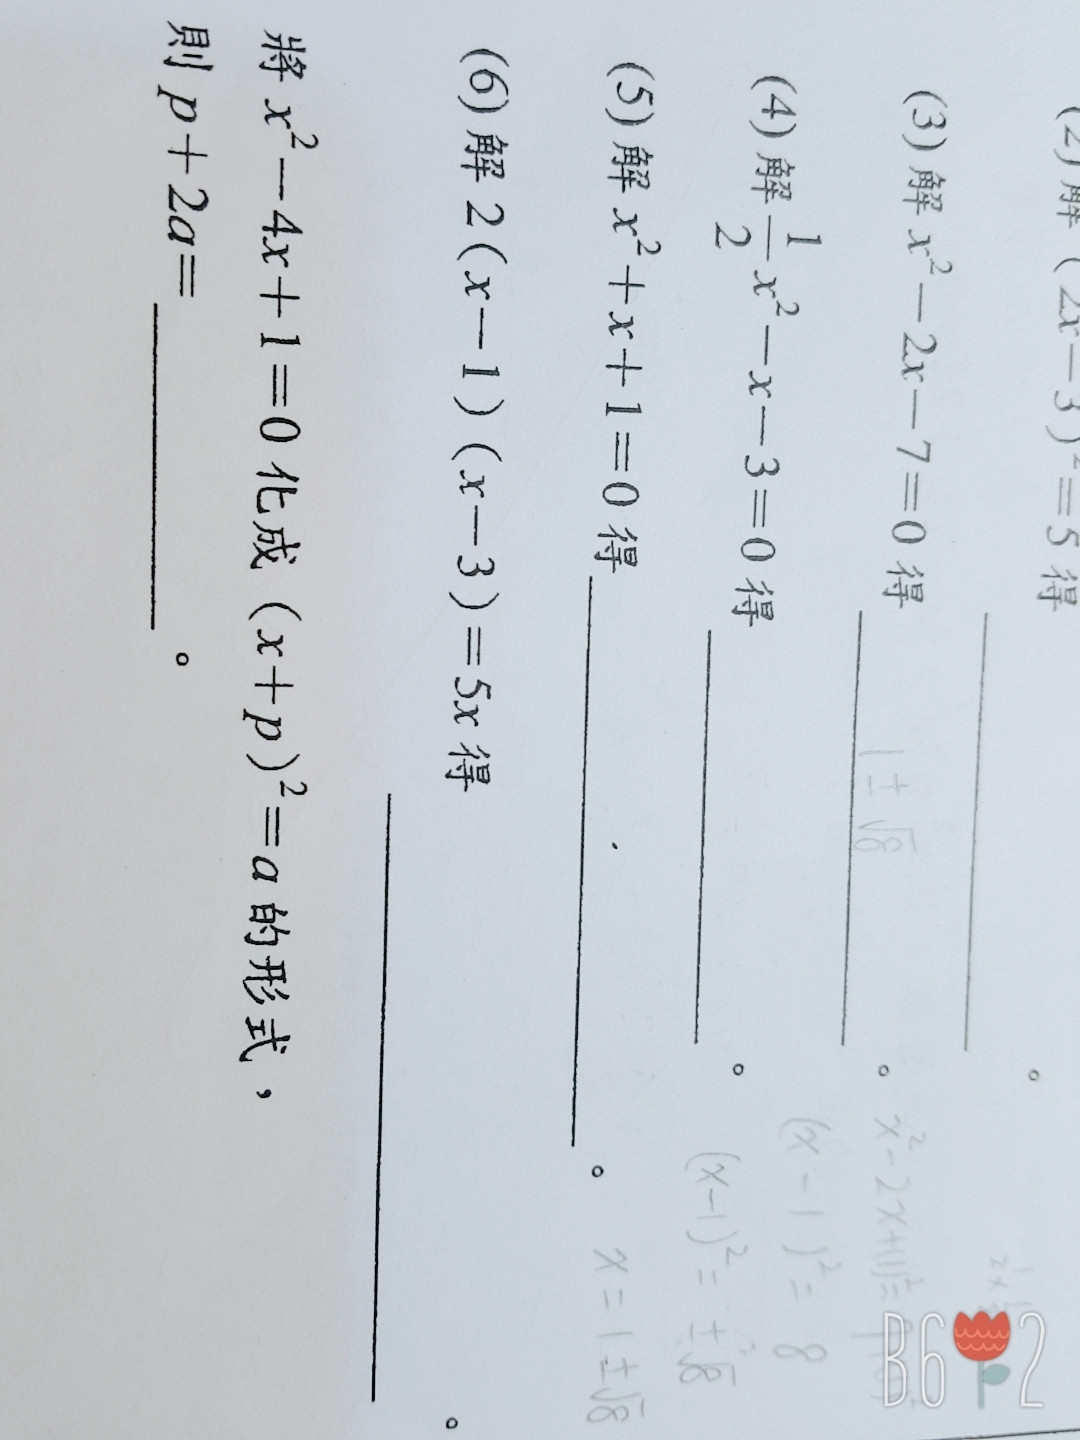 (2) 解 (2x－3)²＝5 得 。
(3) 解 x²－2x－7＝0 得 1±√8 。
x²－2x+(1)²＝
(x－1)²＝8
(4) 解 1/2 x²－x－3＝0 得 。
(x－1)²＝±√8
(5) 解 x²＋x＋1＝0 得 。
x＝1±√8
(6) 解 2(x－1)(x－3)＝5x 得 。
將 x²－4x＋1＝0 化成 (x＋p)²＝a 的形式，
則 p＋2a＝ 。
B6 2